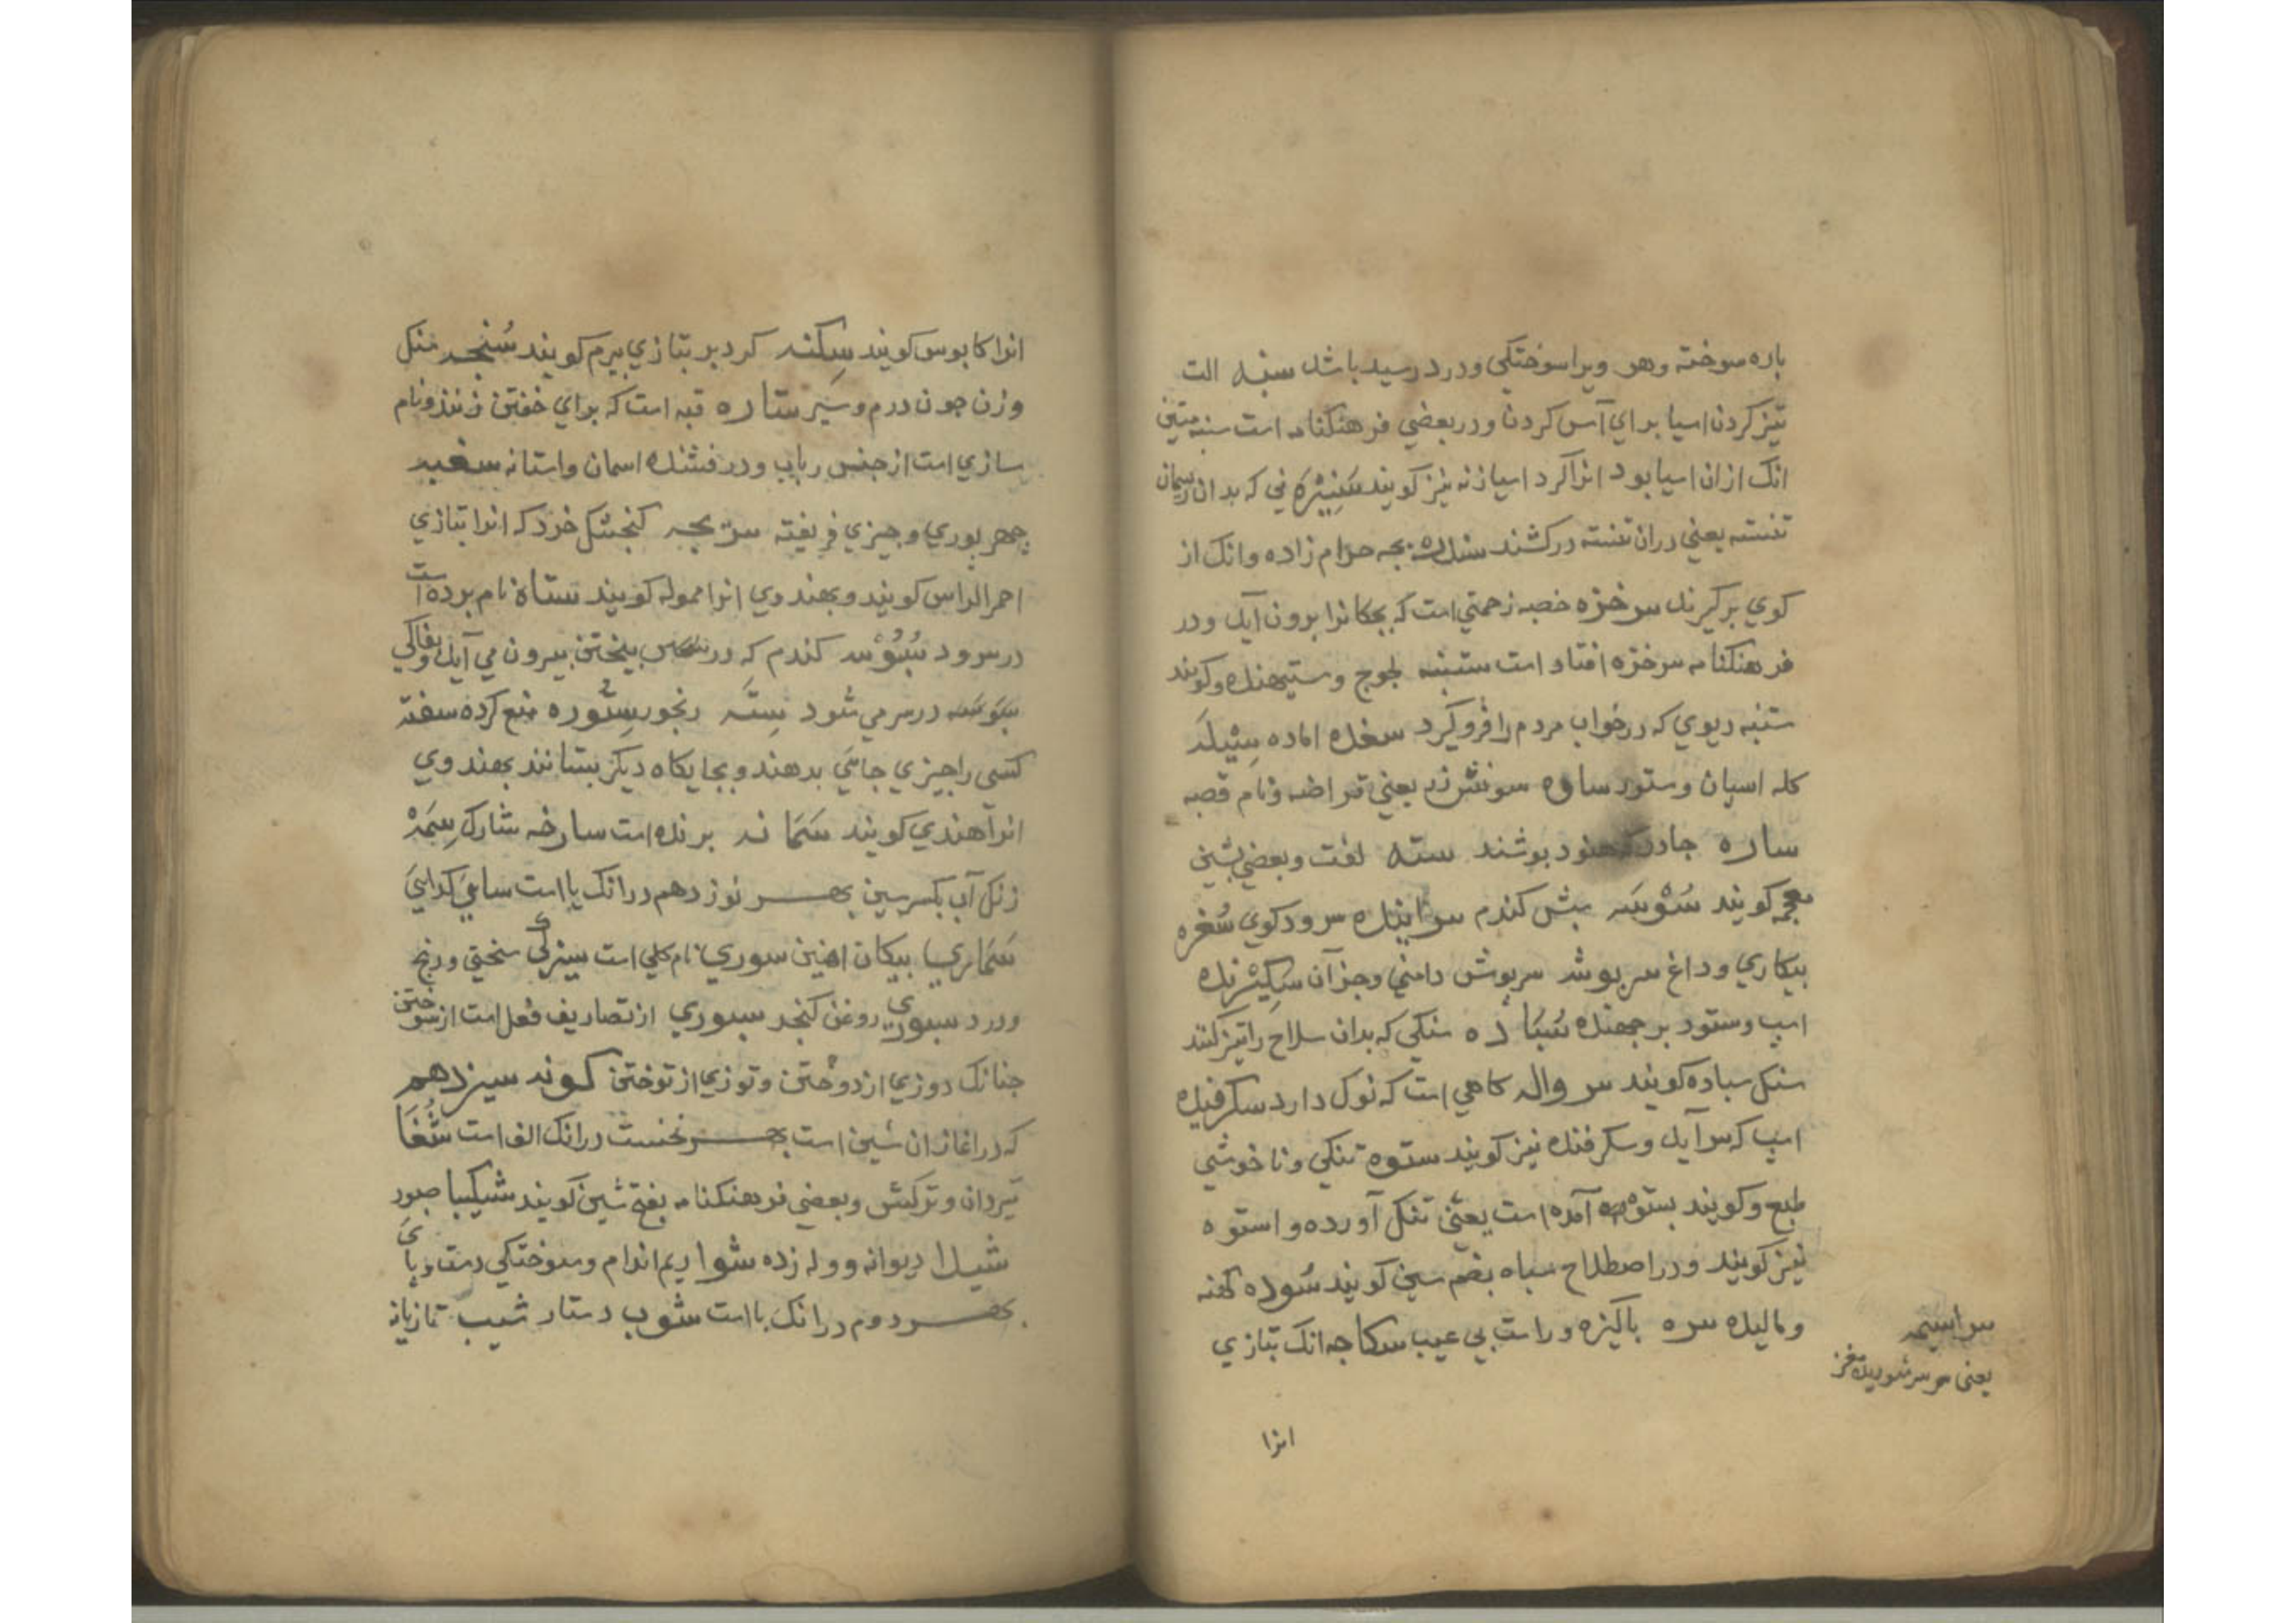 باره سوخته وهر ویرا سوختکی ودرد رسید باشد سنبه الت
تیز کردن اسیا برای آس کردن ودر بعضی فرهنکنامه است سنبه متین
انک ازان اسیا بود انرا کرد اسیازنه نیز کویند سَنِیْزَه نی که بدان ریسمان
تنسته یعنی دران تنسته درکشند سنده بچه حرام زاده وانک از
کوی برکیرند سرخزه خصبه زحمتی است که بچکانرا برون آید ودر
فرهنکنامه سرخزه افتاد است ستنبه لجوج وستیهنده وکویند
ستنبه دیوی که درخواب مردم را فروکیرد سغده اماده سِیْیلَه
کله اسپان وستور ساوه سونش زر یعنی قراضه ونام قصبه
ساره جادر که هنود بوشند سته لغت وبعضی بشین
معجمه کویند سُوْسَه سبش کندم سراینده سرودکوی سُغره
بیکاری وداغ سربوشه سربوش دامنی وجز آن سکیزنده
اسپ وستور برجهنده سُنبَا ده سنکی که بدان سلاح را تیز کنند
سنک سباده کویند سر واله کاهی است که نوک دارد سکرفیده
اسپ که بسر آید وسکرفنده نیز کویند ستوه تنکی وناخوشی
طبع وکویند بستوه آمده است یعنی تنک آورده واستوه
نیز کویند ودر اصطلاح سباه بضم سین کویند سُوده کهنه
ومالیده سره باکیزه وراست بی عیب سکاجه انک بتازی
سراسیمه
یعنی سرشوریده مغز
انرا
انرا کابوس کویند سِکنه کرد بر بتازی بیرم کویند سُنجه سنک
وزن جون درم وسیر ستاره قبه است که برای خفتن زنند ونام
سازی است از جنس رباب ودرفشنده اسمان واستانه سغبه
جمهر بوری وجیزی فریفته سریجه کنجشک خرد که انرا بتازی
احمر الراس کویند وبهندوی انرا مموله کویند ستاه نام برده است
درسرود سُبُوْسه کندم که در بیختن بیرون می آید وخاکی
سبوسه درسر می شود سِتَه رنجور سِتُوره منع کرده سفته
کسی را جیزی جائی بدهند وبجایکاه دیکر بستانند بهندوی
انرا هندی کویند سَمَا نه برنده است سارخه شارک سِمَهْ
زنک آب بکسر سین بهر نوزدهم درانک یا است سایی کدایی
سَمَاری بیکان اهنین سوری نام کلی است سیزکی سختی ورنج
ودرد سبوری روغن کنجد سبوری از تصاریف فعل است از سوختن
جنانک دوزی از دوختن وتوزی از توختن کونه سیزدهم
که در اغاز ان شین است بهر نخست درانک الف است شُغَا
تیردان وترکش وبعضی فرهنکنامه بفتح شین کویند شکیبا صبور
شیدا دیوانه ووله زده شوا ریم اندام وسوختکی دست وپای
بهر دوم درانک با است شوب دستار شیب تازیانه